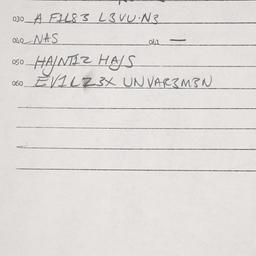 030 A FIL83 L3VU.N3
040 NAS 041 —
050 HAJNTIZ HAJS
060 EVILZ3X UNVAR3M3N